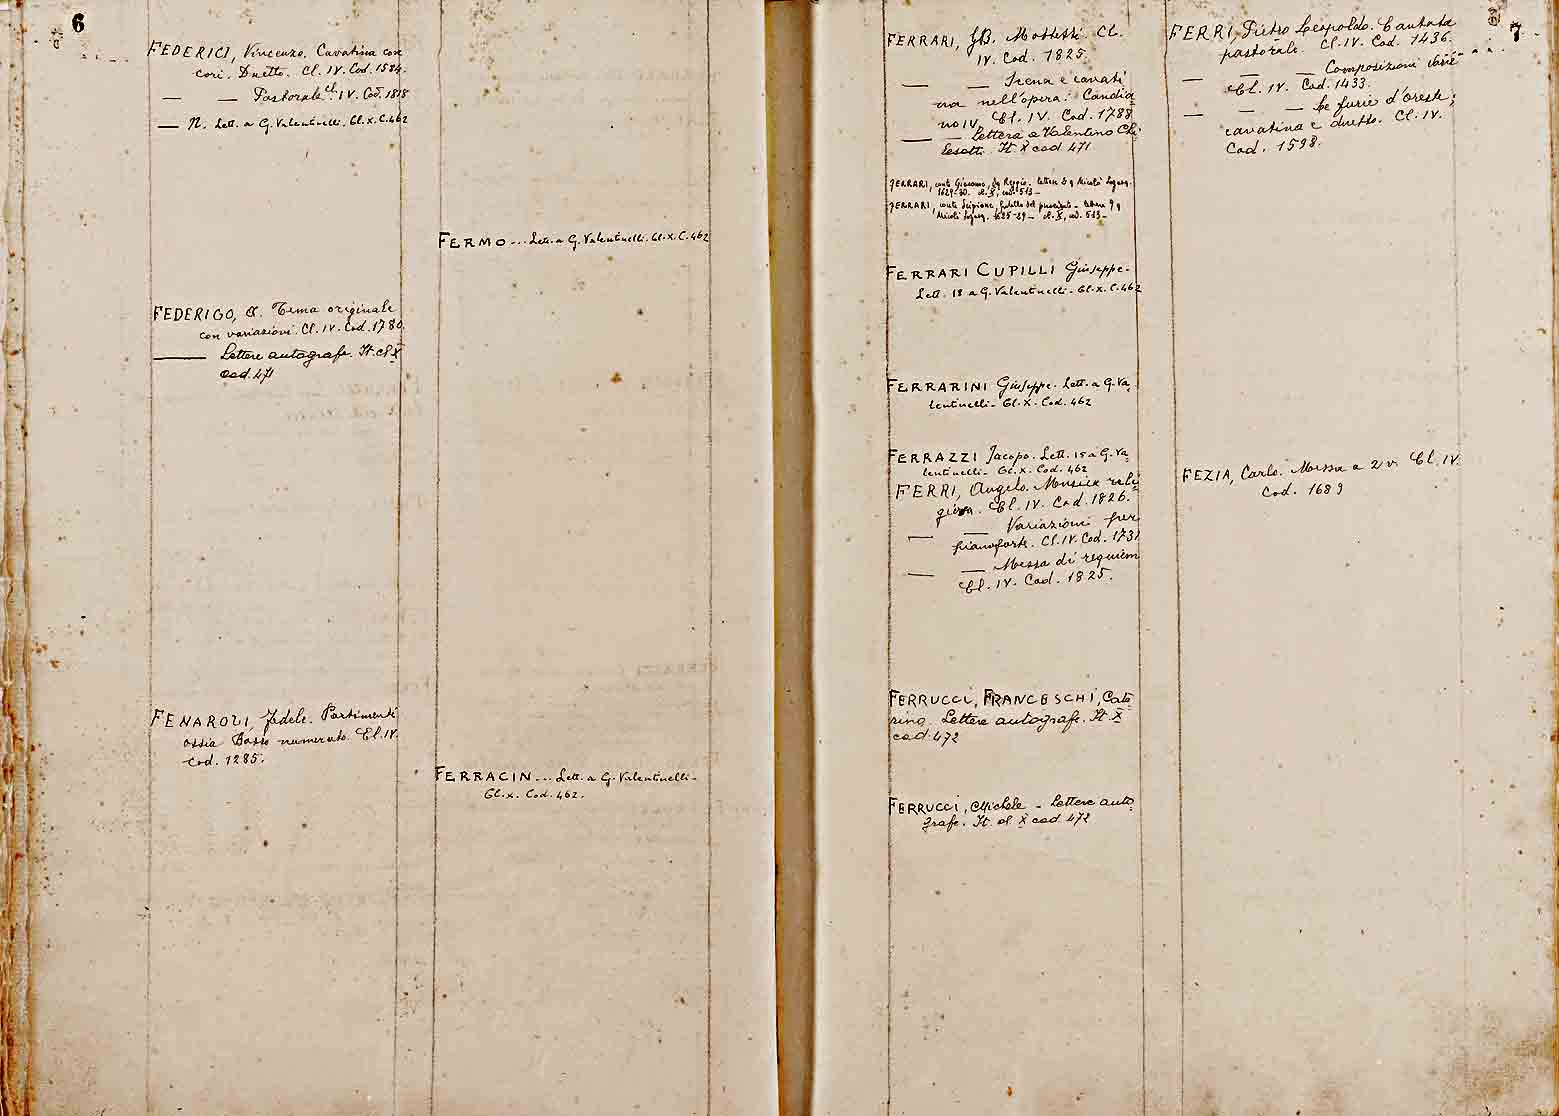 6
FEDERICI, Vincenzo. Cavatina con
cori. Duetto. Cl. IV. Cod. 1584.
— — Pastorale Cl. IV. Cod. 1818
— N. Lett. a G. Valentinelli. Cl. X. C. 462
FEDERIGO, A. Tema originale
con variazioni. Cl. IV. Cod. 1780.
— Lettere autografe. It. cl X
cod. 471
FENAROLI, Fedele. Partimenti
ossia Basso numerato. Cl. IV.
Cod. 1285.
FERMO ... Lett. a G. Valentinelli. Cl. X. C. 462
FERRACIN ... Lett. a G. Valentinelli -
Cl. X. Cod. 462.
7
FERRARI, GB. Mottetti Cl.
IV. Cod. 1825.
— — Scena e cavati
na nell'opera: Candia
no IV. Cl. IV. Cod. 1788
— — Lettera a Valentino Chi
lesotti. It X cod 471
FERRARI, conte Giacomo, da Reggio. lettere a Nicolò
1629-30. cl. X, cod. 513 -
FERRARI, conte Scipione, fratello del precedente - lettere 9 a
Nicolò 1625-29 - cl. X, cod. 513 -
FERRARI CUPILLI Giuseppe -
Lett. 18 a G. Valentinelli - Cl. X. C. 462
FERRARINI Giuseppe. Lett. a G. Va-
lentinelli - Cl. X. Cod. 462
FERRAZZI Jacopo. Lett. 15 a G. Va-
lentinelli - Cl. X. Cod. 462
FERRI, Angelo. Musica reli-
giosa. Cl. IV. Cod. 1826.
— — Variazioni per
pianoforte. Cl. IV. Cod. 1731
— — Messa di requiem
Cl. IV. Cod. 1825.
FERRUCCI, FRANCESCHI, Cate-
rina. Lettere autografe. It. X
cod. 472
FERRUCCI, Michele - Lettere auto-
grafe. It. cl X cod 472
FERRI, Pietro Leopoldo. Cantata
pastorale. Cl. IV. Cod. 1436.
— — — Composizioni varie
Cl. IV. Cod. 1433.
— — — Le furie d'Oreste;
cavatina e duetto. Cl. IV.
Cod. 1598.
FEZIA, Carlo. Messa a 2 v. Cl. IV.
Cod. 1689